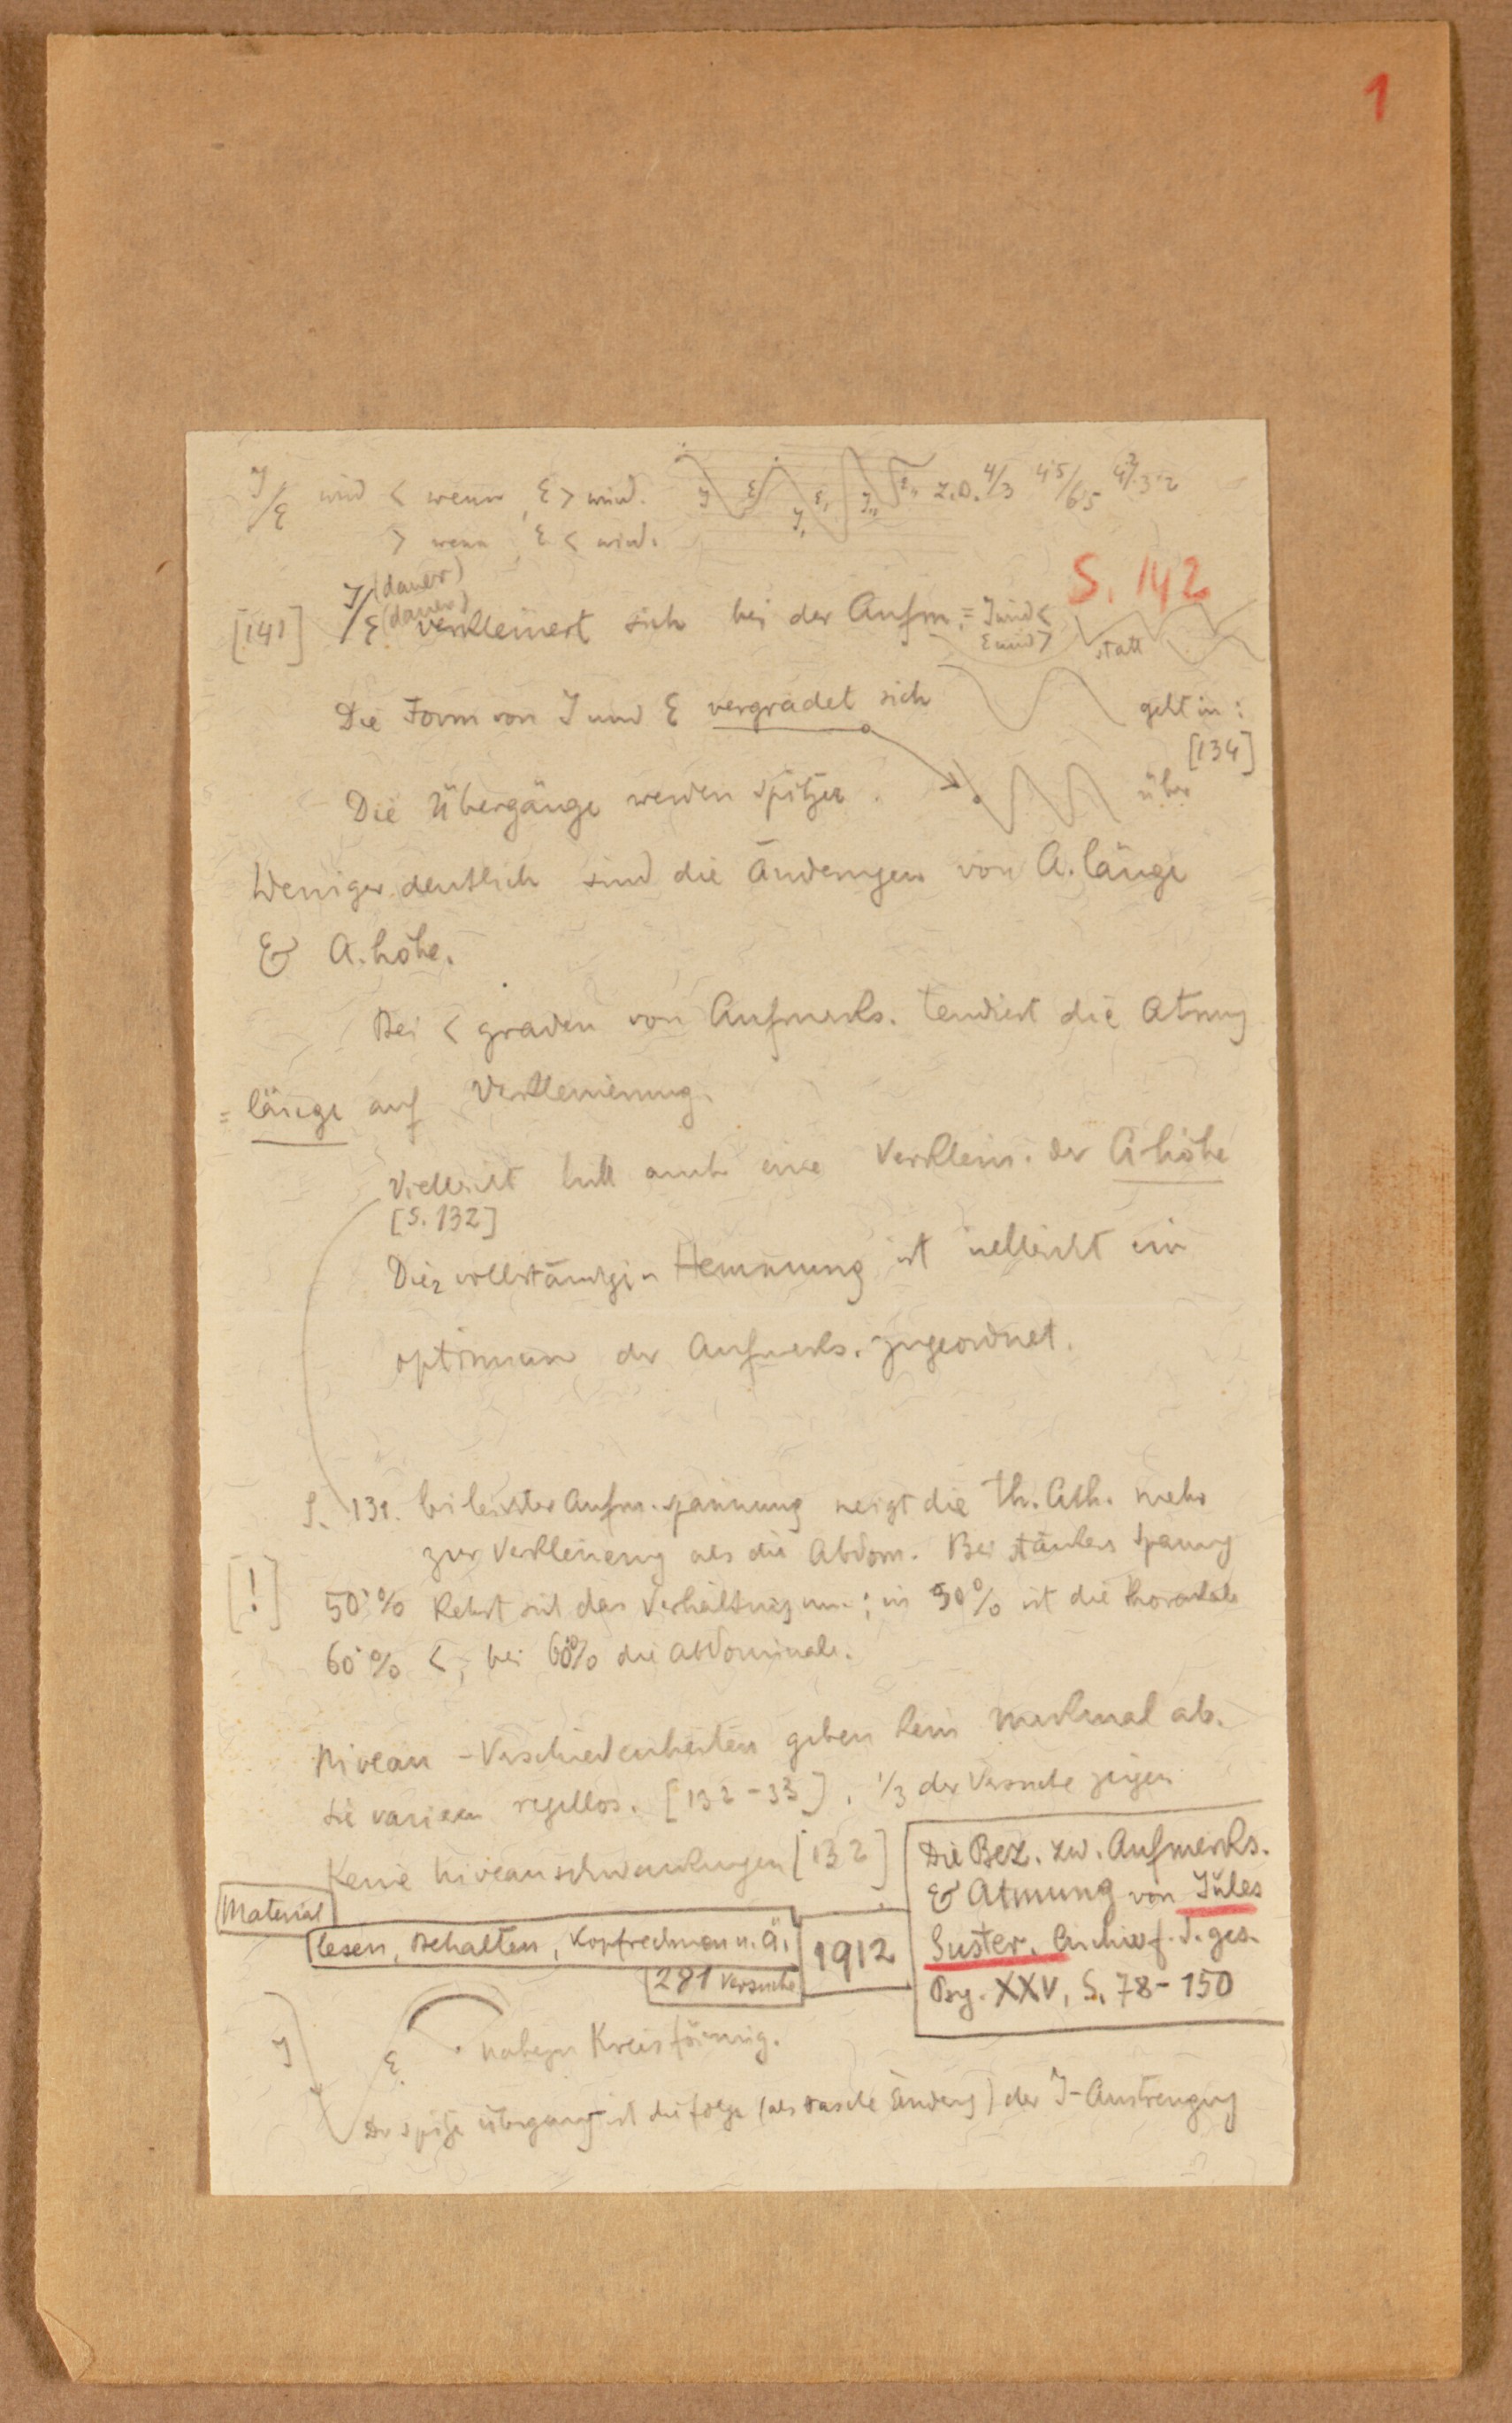 1
J/ε wird < wenn ε > wird.
> wenn ε < wird.
J ε J, ε, J,, ε,, z.B. 4/3 4·5/6·5
S. 142
[141] J(dauer)/ε(dauer) verkleinert sich bei der Aufm. = J wird <
ε wird >
statt
Die Form von J und ε vergradet sich
geht in:
[134]
Die Übergänge werden spitzer.
über
Weniger deutlich sind die Änderungen von A.länge
& A.höhe.
Bei < graden von Aufmerks. tendiert die Atmung
= länge auf Verkleinerung.
Vielleicht tritt auch eine Verklein. der A-höhe
[S. 132]
Die vollständige Hemmung ist vielleicht ein
optimum der Aufmerks. zugeordnet.
S. 131. bei leichter Aufm.spannung neigt die th. Ath. mehr
zur Verkleinerung als die Abdom. Bei stärker Spannung
[!] 50% kehrt sich das Verhältnis um; in 50% ist die thorakale
60% <, bei 60% die abdominale.
Niveau-Verschiedenheiten geben kein Merkmal ab.
sie variieren regellos. [132-33]. 1/3 der Versuche zeigen
Keine Niveauschwankungen [132]
Die Bez. zw. Aufmerks.
& Atmung von Jules
Suster. Archiv f. d. ges.
Psy. XXV, S. 78-150
Material
lesen, Behalten, Kopfrechnen u. Ä.
1912
281 Versuche
J
ε
nahezu Kreisförmig.
Der spitze Übergang ist die folge (als rasche Änderg) der J-Anstrengung